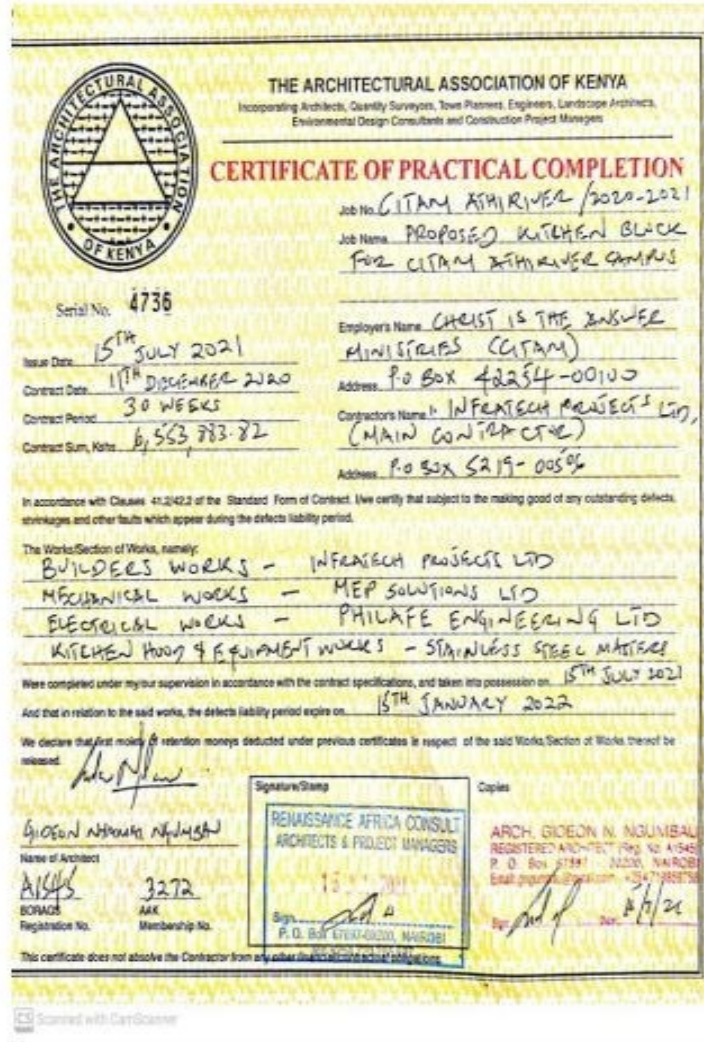 THE ARCHITECTURAL ASSOCIATION OF KENYA
Incorporating Architects, Quantity Surveyors, Town Planners, Engineers, Landscape Architects,
Environmental Design Consultants and Construction Project Managers
THE ARCHITECTURAL ASSOCIATION OF KENYA
CERTIFICATE OF PRACTICAL COMPLETION
Job No. CITAM ATHIRIVER /2020-2021
Job Name PROPOSED KITCHEN BLOCK
FOR CITAM ATHIRIVER CAMPUS
Serial No. 4736
Issue Date 15TH JULY 2021
Contract Date 11TH DECEMBER 2020
Contract Period 30 WEEKS
Contract Sum, Kshs 6,553,883.82
Employer's Name CHRIST IS THE ANSWER
MINISTRIES (CITAM)
Address P.O BOX 42254-00100
Contractor's Name INFRATECH PROJECTS LTD,
(MAIN CONTRACTOR)
Address P.O BOX 5219-00506
In accordance with Clauses 41.2/42.2 of the Standard Form of Contract. I/we certify that subject to the making good of any outstanding defects,
shrinkages and other faults which appear during the defects liability period.
The Works/Section of Works, namely:
BUILDERS WORKS - INFRATECH PROJECTS LTD
MECHANICAL WORKS - MEP SOLUTIONS LTD
ELECTRICAL WORKS - PHILAFE ENGINEERING LTD
KITCHEN HOOD & EQUIPMENT WORKS - STAINLESS STEEL MATTERS
Were completed under my/our supervision in accordance with the contract specifications, and taken into possession on 15TH JULY 2021
And that in relation to the said works, the defects liability period expire on 15TH JANUARY 2022
We declare that first moiety of retention moneys deducted under previous certificates in respect of the said Works/Section of Works thereof be
released.
Signature/Stamp
Copies
GIDEON NGUMBAU
Name of Architect
A1545 3272
BORAQS AAK
Registration No. Membership No.
RENAISSANCE AFRICA CONSULT
ARCHITECTS & PROJECT MANAGERS
Sign
P. O. Box 67897-00200, NAIROBI
ARCH. GIDEON N. NGUMBAU
REGISTERED ARCHITECT (Reg. No. A1545)
P. O. Box 00200, NAIROBI
This certificate does not absolve the Contractor from any other financial/contractual obligations.
CS Scanned with CamScanner